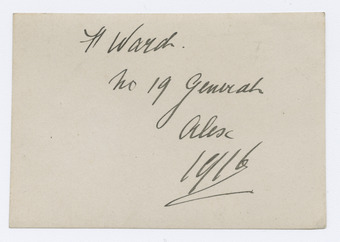 H Ward.
No 19 General
Alex
1916